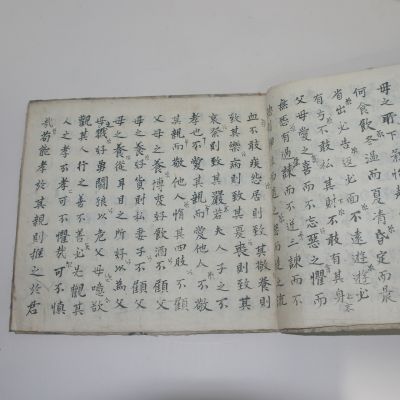 母之所下
何食飲冬溫而夏凊昏定而晨
省出必告返必面不遠遊遊必
有方不敢私其財不敢有其身
父母愛之喜而不忘惡之懼而
無怨有過諫而不逆三諫而
血不敢疾怨居則致其敬養則
致其樂病則致其憂喪則致其
哀祭則致其嚴若夫人子之不
孝也不愛其親而愛他人不敬
其親而敬他人惰其四肢不顧
父母之養博奕好飲酒不顧父
母之養好貨財私妻子不顧父
母之養從耳目之所好以為父
母戮好勇鬪狼以危父母噫欲
觀其人行之善不善必先觀其
人之孝不孝可不懼哉可不慎
哉苟能孝於其親則推之於君